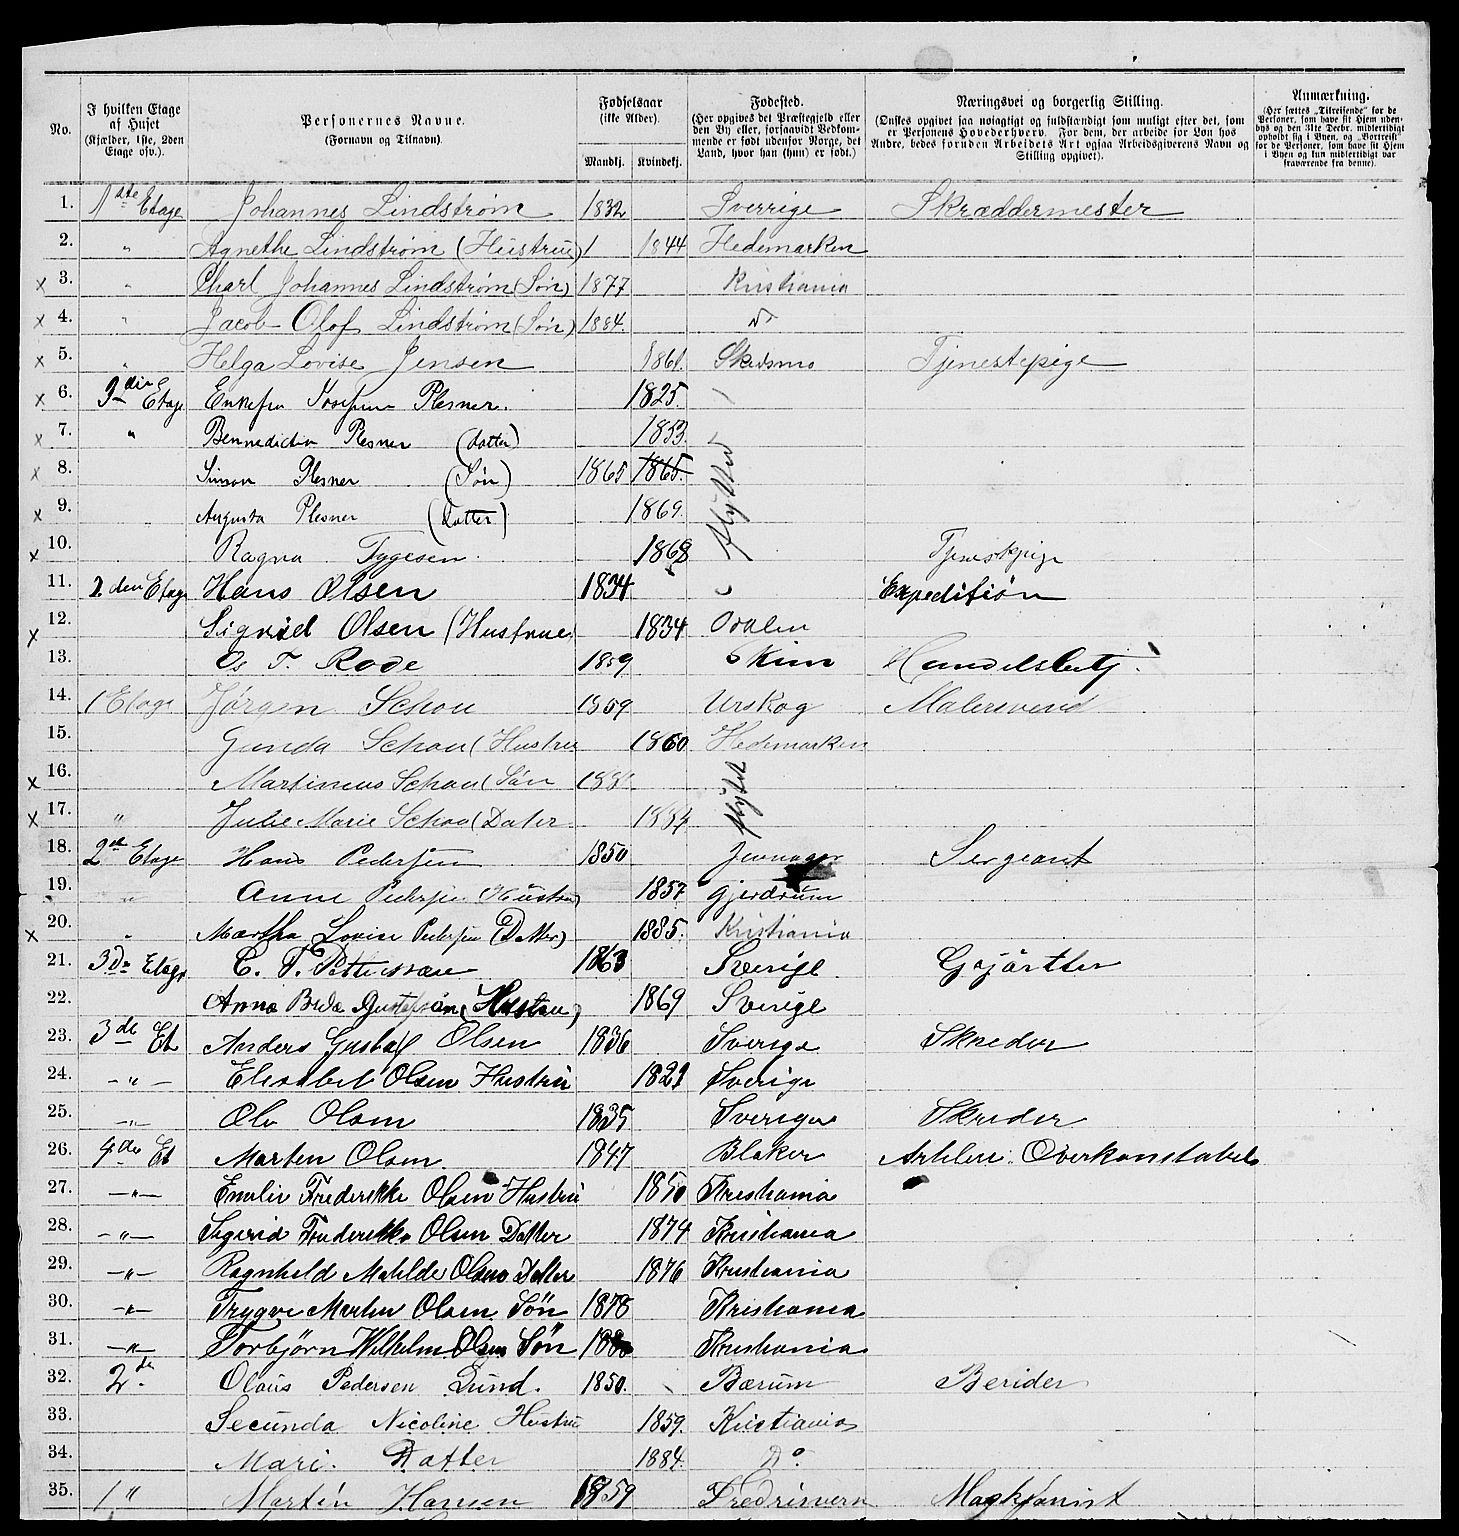 No.
I hvilken Etage af Huset (Kjælder, 1ste, 2den Etage osv.).
Personernes Navne. (Fornavn og Tilnavn).
Fødselsaar (ikke Alder).
Mandkj. Kvindekj.
Fødested. (Her opgives det Præstegjeld eller den By eller, forsaavidt Vedkommende er født udenfor Norge, det Land, hvor han (hun) er født.)
Næringsvei og borgerlig Stilling. (Ønskes opgivet saa nøiagtigt og fuldstændigt som muligt efter det, som er Personens Hovederhverv. For dem, der arbeide for Løn hos Andre, bedes foruden Arbeidets Art ogsaa Arbeidsgiverens Navn og Stilling opgivet).
Anmærkning. (Her sættes „Tilreisende“ for de Personer, som have sit Hjem udenbys og den 31te Decbr. midlertidigt opholdt sig i Byen, og „Bortreist“ for de Personer, som have sit Hjem i Byen og kun midlertidigt var fraværende fra denne).
1. 1ste Etage Johannes Lindstrøm 1832 Sverrige Skræddermester
2. " Agnethe Lindstrøm (Hustrue) 1 1844 Hedemarken
x 3. " Charl Johannes Lindstrøm (Søn) 1877 Kristiania
x 4. " Jacob Olof Lindstrøm (Søn) 1884.
x 5. " Helga Lovise Jensen 1861. Skedsmo Tjenestepige
x 6. 3die Etage Enkefru Josefine Plesner. 1825.
x 7. " Bennedicten Plesner (datter) 1853
x 8. Simon Plesner (Søn) 1865 1865.
x 9. " Augusta Plesner (Datter) 1869. flytted
x 10. Ragna Tygesen. 1868 Tjenestpige
11. 2den Etage Hans Olsen 1834 Expeditiøn
x 12. Sigrid Olsen (Hustrue 1834 Odalen
13. T. Rode 1859 Skim Handelsbetj.
14. 1 Etage Jørgen Schou 1859 Urskog Malersvend
15. Gunda Schou (Hustru 1860 Hedemarken
x 16. Martineus Schou (Søn flytet
x 17. " Julie Marie Schou (Dater 1884
18. 2den Etage Hans Pedersen 1850 Jevnager Sergeant
19. " Anne Pedersen Hustru) 1857 Gjerdrum
x 20. " Martha Lovise Pedersen (Datter) 1885. Kristiania
21. 3de Etage C. F. Pettersson 1863 Sverige Gjørtler
22. Anna Beda Gustafson (Hustru) 1869 Sverige
23. 3de Et Anders Gustaf Olsen 1836 Sverige Skredder
24. -"- Elisabet Olsen Hustru 1821 Sverige
25. -"- Ole Olsen 1835 Sverige Skreder
26. 4de Et Morten Olsen. 1847 Blaker Artileri Overkonstabel
27. -"- Emelie Frederikke Olsen Hustru 1850 Kristiania
28. -"- Sigrid Frederikke Olsen Datter 1874 Kristiania
29. -"- Ragnhild Matilde Olsen Datter 1876 Kristiania
30. -"- Trygve Martin Olsen Søn 1878 Kristiania
31. -"- Torbjörn Wilhelm Olsen Søn 1880 Kristiania
32. 2de Olaus Pedersen Lund. 1850. Bærum Berider
33. Secunda Nicoline Hustru 1859. Kristiania
34. Mari. Datter 1884. Do
35. 1 " Martin Hansen 1859 Fredrisvern Maskinist